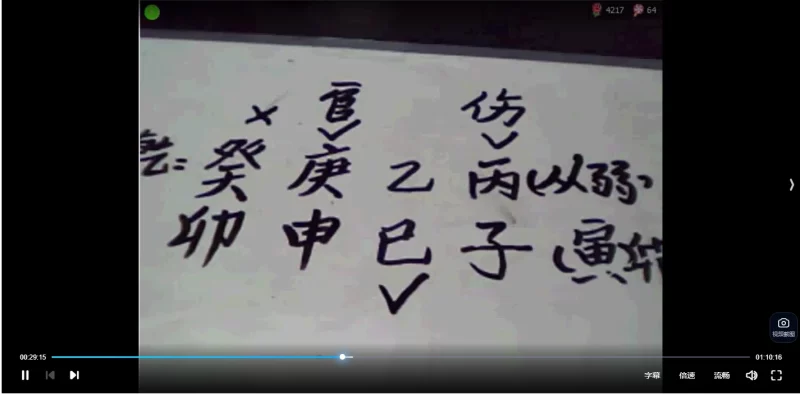 4217 64
× 官 伤
: 癸 庚 乙 丙 (从弱)
卯 申 巳 子 (寅)
00:29:15
01:10:16
字幕 倍速 流畅
视频截图